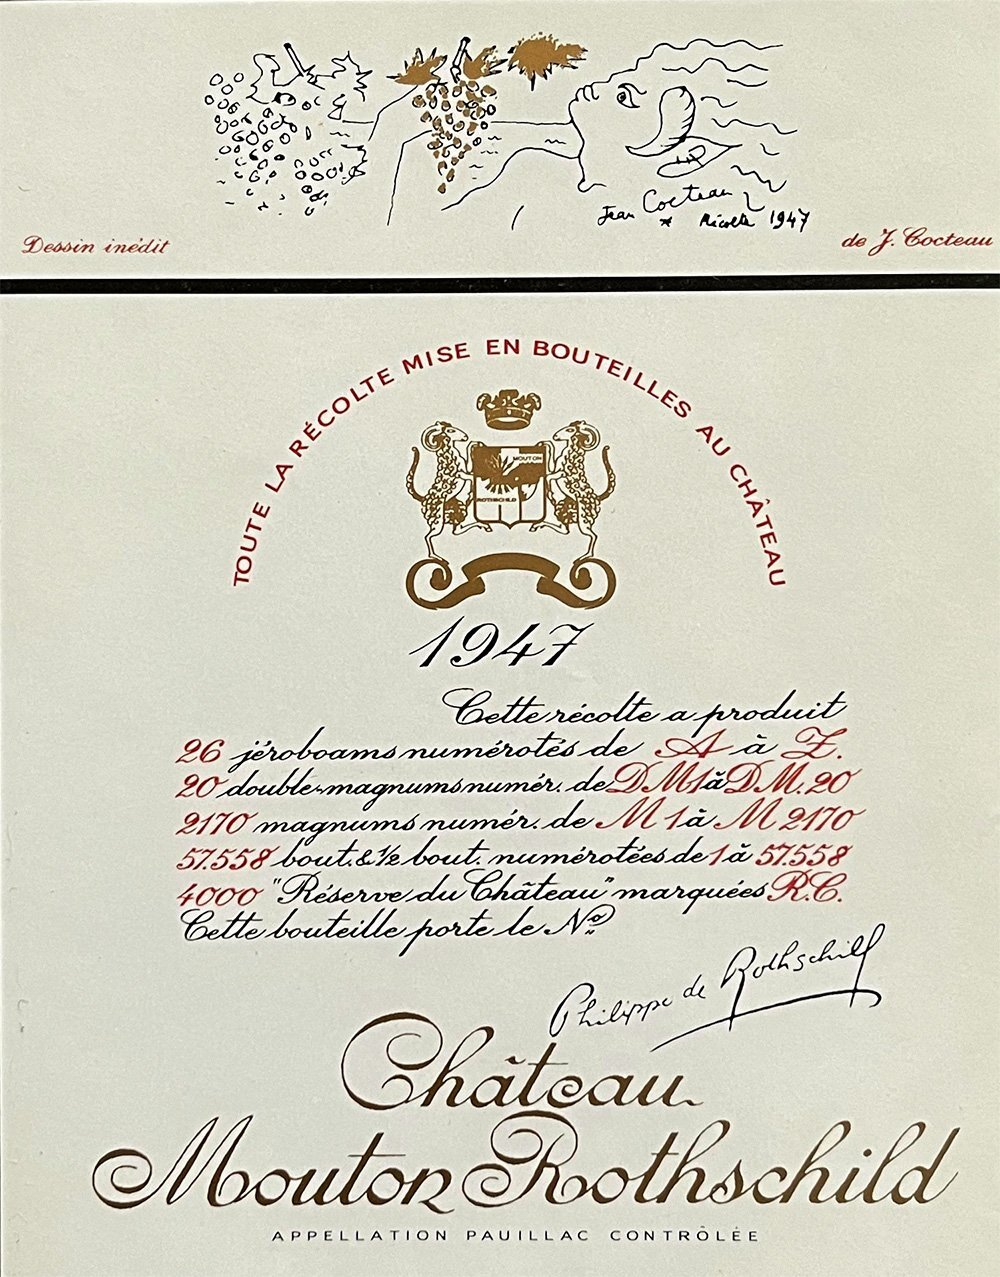 Jean Cocteau
* Récolte 1947
Dessin inédit
de J. Cocteau
TOUTE LA RÉCOLTE MISE EN BOUTEILLES AU CHÂTEAU
MOUTON
ROTHSCHILD
1947
Cette récolte a produit
26 jéroboams numérotés de A à Z.
20 double-magnums numér. de DM1 à DM.20
2170 magnums numér. de M 1 à M 2170
57.558 bout. & ½ bout. numérotées de 1 à 57.558
4000 "Réserve du Château" marquées R.C.
Cette bouteille porte le Nº
Philippe de Rothschild
Château
Mouton Rothschild
APPELLATION PAUILLAC CONTRÔLÉE